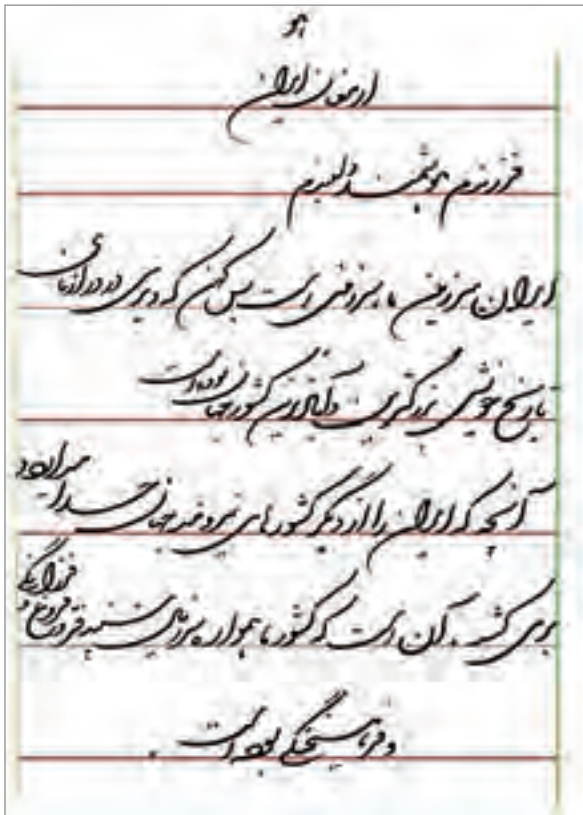 هو
ارمغان ایران
فرزندم هوشمند دلبندم
ایران سرزمین ما سرزمینی است بس کهن که دیری در درازنای
تاریخ خویش بزرگترین و آبادترین کشور جهان بوده است
آنچه که ایران را از دیگر کشورهای نیرومند جهان جدا می‌دارد و
برمی کشد. آن است که کشور ما همواره سرزمین سپند فر و فروغ و فرزانگی
و فرهیختگی بوده است.